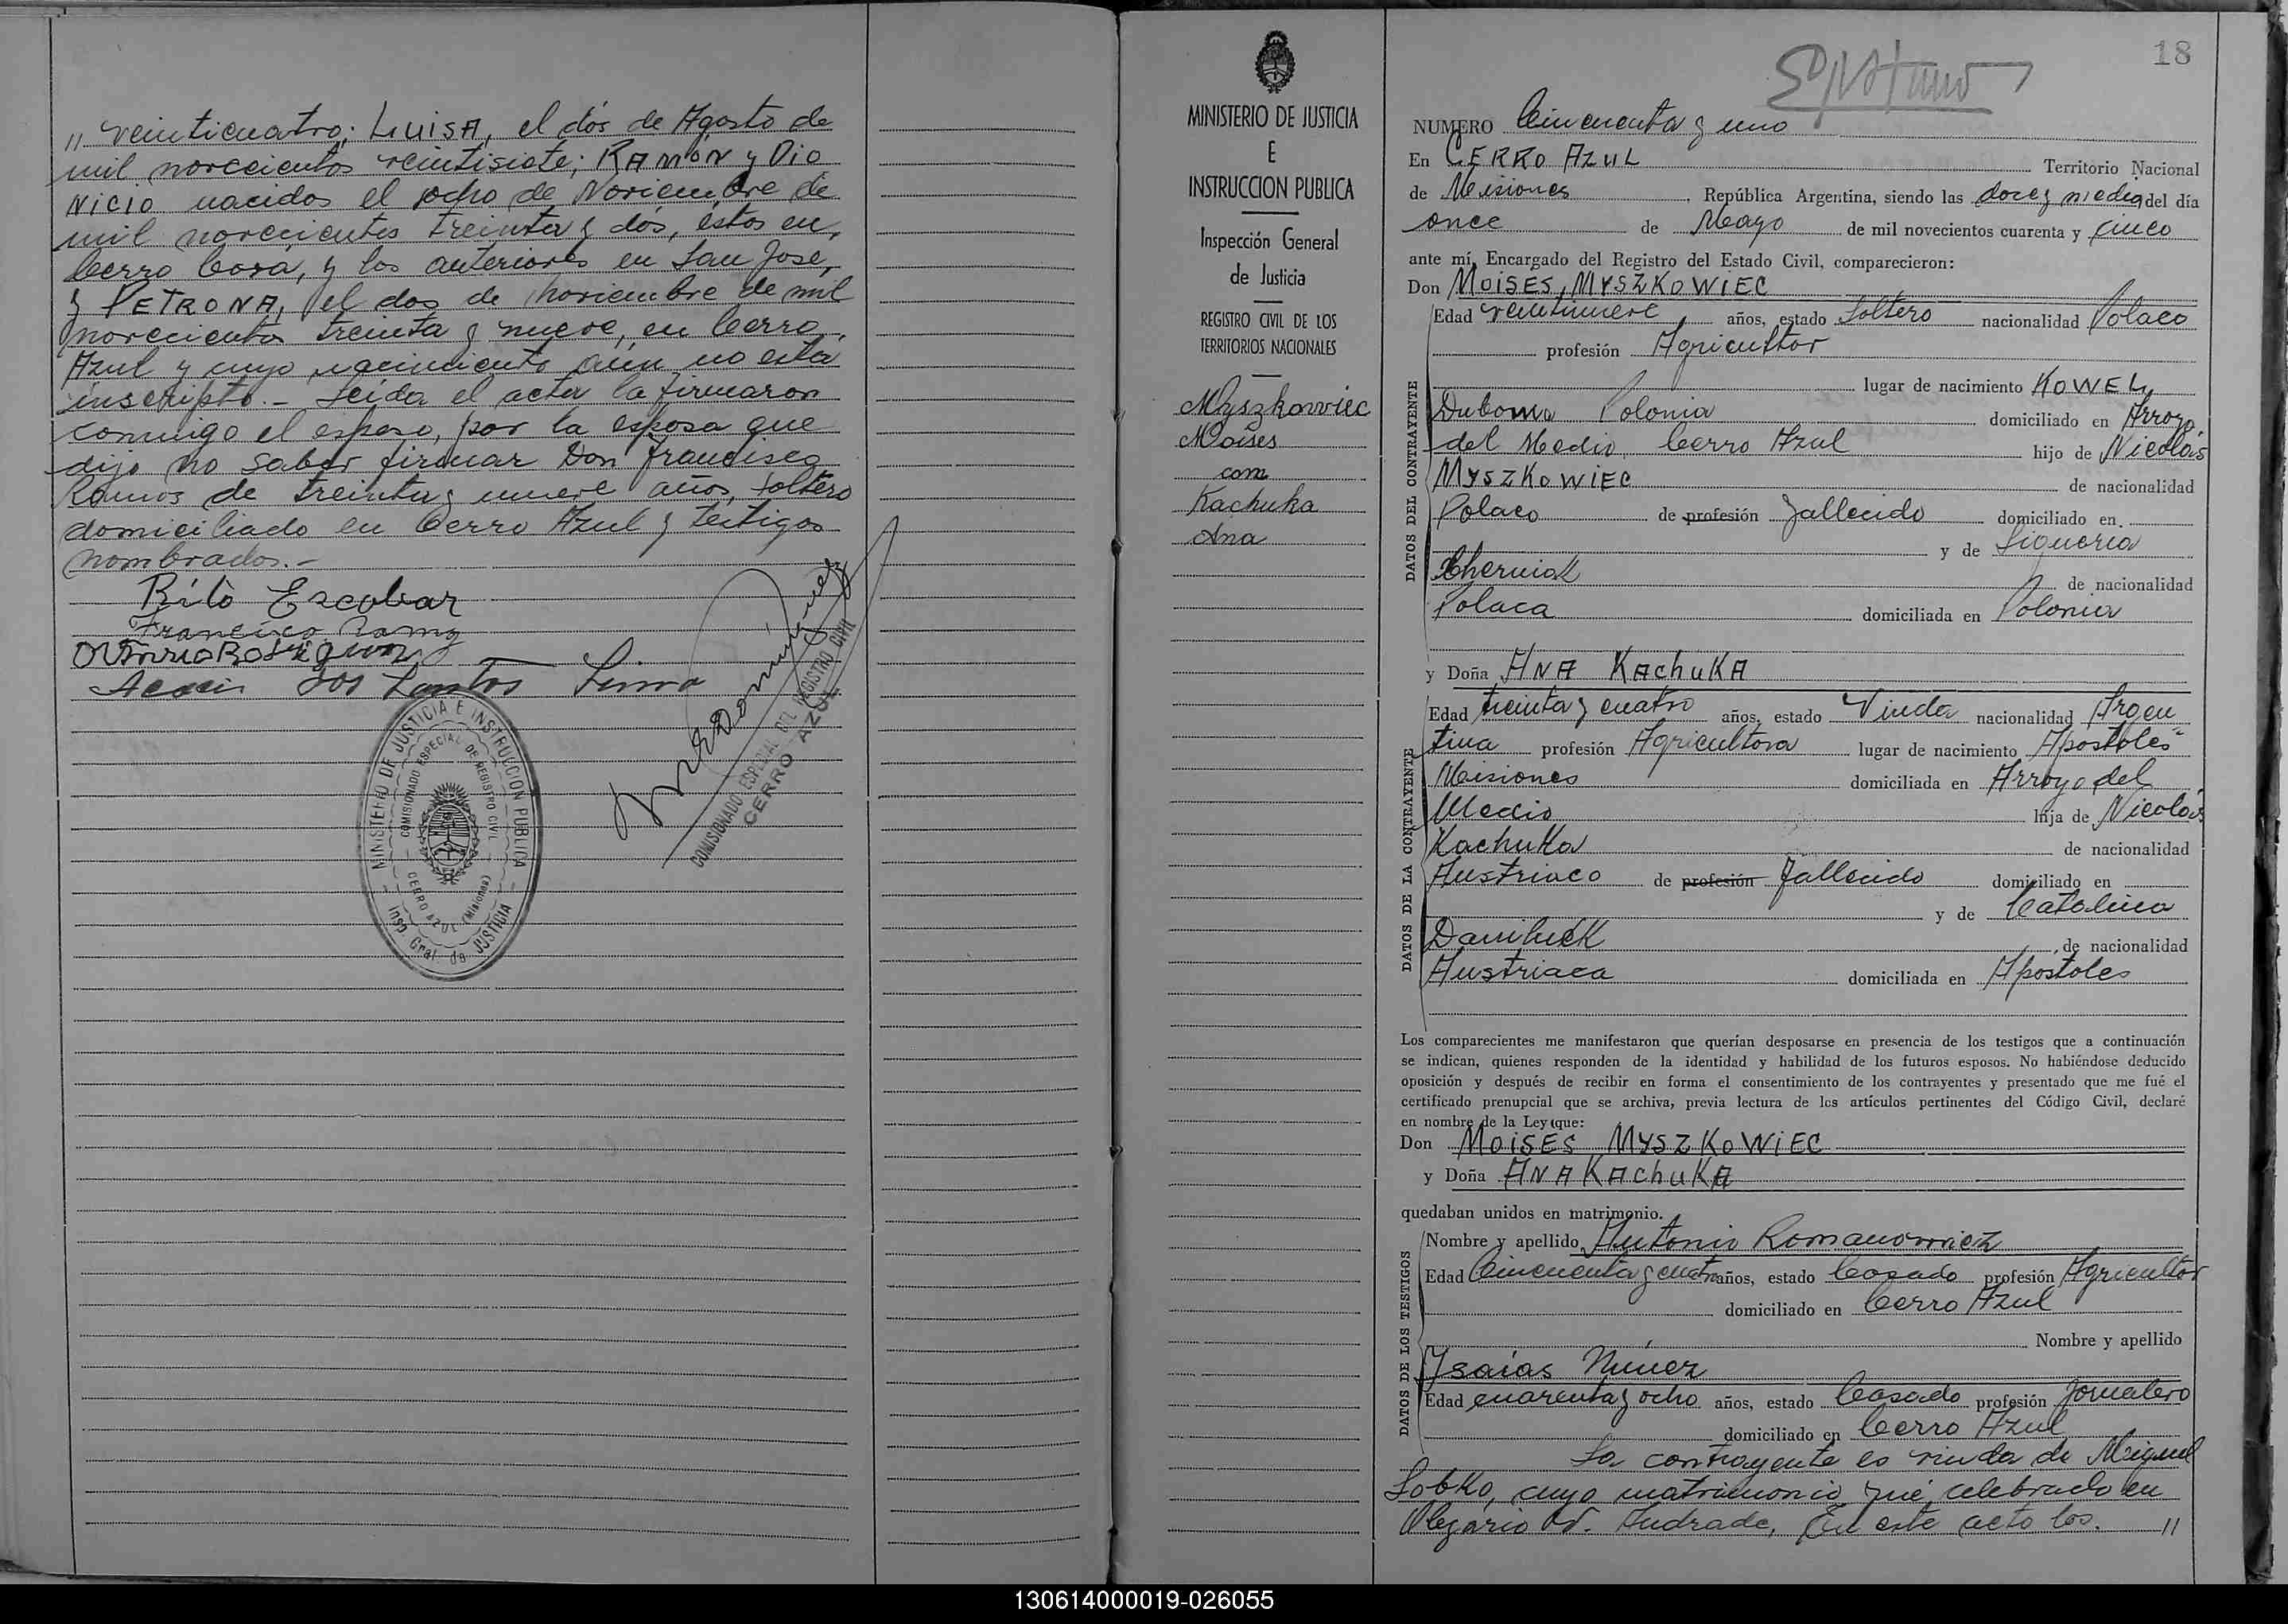 " veinticuatro; LUISA, el dós de Agosto de
mil novecientos veintisiete; RAMON y Dio
nicio nacidos el ocho de Noviembre de
mil novecientos treinta y dós, éstos en,
Cerro Corá, y los anteriores en San José,
y PETRONA, el dos de noviembre de mil
novecientos treinta y nueve, en Cerro
Azul y cuyo nacimiento aún no está
inscripto.- Leída el acta la firmaron
conmigo el esposo, por la esposa que
dijo no saber firmar Don Francisco
Ramos de treinta y nueve años, soltero
domiciliado en Cerro Azul y testigos
nombrados.-
Rito Escobar
Francisco Ramos
dos Santos Lima
MINISTERIO DE JUSTICIA E INSTRUCCION PUBLICA
COMISIONADO ESPECIAL DE REGISTRO CIVIL
CERRO AZUL (Misiones)
Insp. Gral. de JUSTICIA
COMISIONADO ESPECIAL DEL REGISTRO CIVIL
CERRO AZUL
MINISTERIO DE JUSTICIA
E
INSTRUCCION PUBLICA
Inspección General
de Justicia
REGISTRO CIVIL DE LOS
TERRITORIOS NACIONALES
Myszkowiec
Moises
con
Kachuka
Ana
18
NUMERO Cincuenta y uno
En CERRO AZUL Territorio Nacional
de Misiones, República Argentina, siendo las doce y media del día
once de Mayo de mil novecientos cuarenta y cinco
ante mí, Encargado del Registro del Estado Civil, comparecieron:
Don MOISES MYSZKOWIEC
DATOS DEL CONTRAYENTE
Edad veintinueve años, estado Soltero nacionalidad Polaco
profesión Agricultor
lugar de nacimiento KOWEL
Duboma Polonia domiciliado en Arroyo
del Medio Cerro Azul hijo de Nicolás
MYSZKOWIEC de nacionalidad
Polaco de profesión fallecido domiciliado en
y de
Cherniak de nacionalidad
Polaca domiciliada en Polonia
y Doña ANA KAchuKA
DATOS DE LA CONTRAYENTE
Edad treinta y cuatro años, estado Viuda nacionalidad Argen
tina profesión Agricultora lugar de nacimiento Apóstoles
Misiones domiciliada en Arroyo del
Medio hija de Nicolás
Kachuka de nacionalidad
Austriaco de profesión fallecido domiciliado en
y de Catalina
Daniluck de nacionalidad
Austriaca domiciliada en Apóstoles
Los comparecientes me manifestaron que querían desposarse en presencia de los testigos que a continuación
se indican, quienes responden de la identidad y habilidad de los futuros esposos. No habiéndose deducido
oposición y después de recibir en forma el consentimiento de los contrayentes y presentado que me fué el
certificado prenupcial que se archiva, previa lectura de los artículos pertinentes del Código Civil, declaré
en nombre de la Ley que:
Don MOISES MYSZKOWIEC
y Doña ANA KAchuKA
quedaban unidos en matrimonio.
DATOS DE LOS TESTIGOS
Nombre y apellido Antonio Romanowicz
Edad Cincuenta y cuatro años, estado Casado profesión Agricultor
domiciliado en Cerro Azul
Nombre y apellido
Ysaías Núnez
Edad cuarenta y ocho años, estado Casado profesión Jornalero
domiciliado en Cerro Azul
La contrayente es viuda de Miguel
Sobko, cuyo matrimonio fué celebrado en
Olegario V. Andrade, En este acto los. "
130614000019-026055